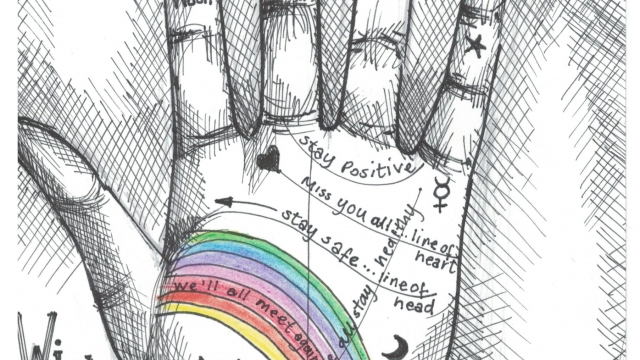 stay positive
Miss you all... line of heart
stay safe... line of head
all stay healthy
we'll all meet again